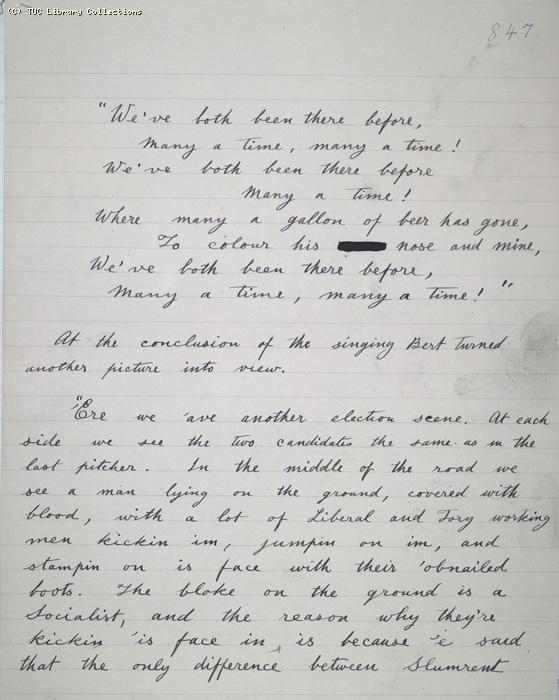 (C) TUC Library Collections
847
"We've both been there before,
Many a time, many a time!
We've both been there before
Many a time!
Where many a gallon of beer has gone,
To colour his nose and mine,
We've both been there before,
Many a time, many a time!"
At the conclusion of the singing Bert turned
another picture into view.
"Ere we 'ave another election scene. At each
side we see the two candidates the same as in the
last pitcher. In the middle of the road we
see a man lying on the ground, covered with
blood, with a lot of Liberal and Tory working
men kickin im, jumpin on im, and
stampin on is face with their 'obnailed
boots. The bloke on the ground is a
Socialist, and the reason why they're
kickin 'is face in, is because 'e said
that the only difference between Slumrent